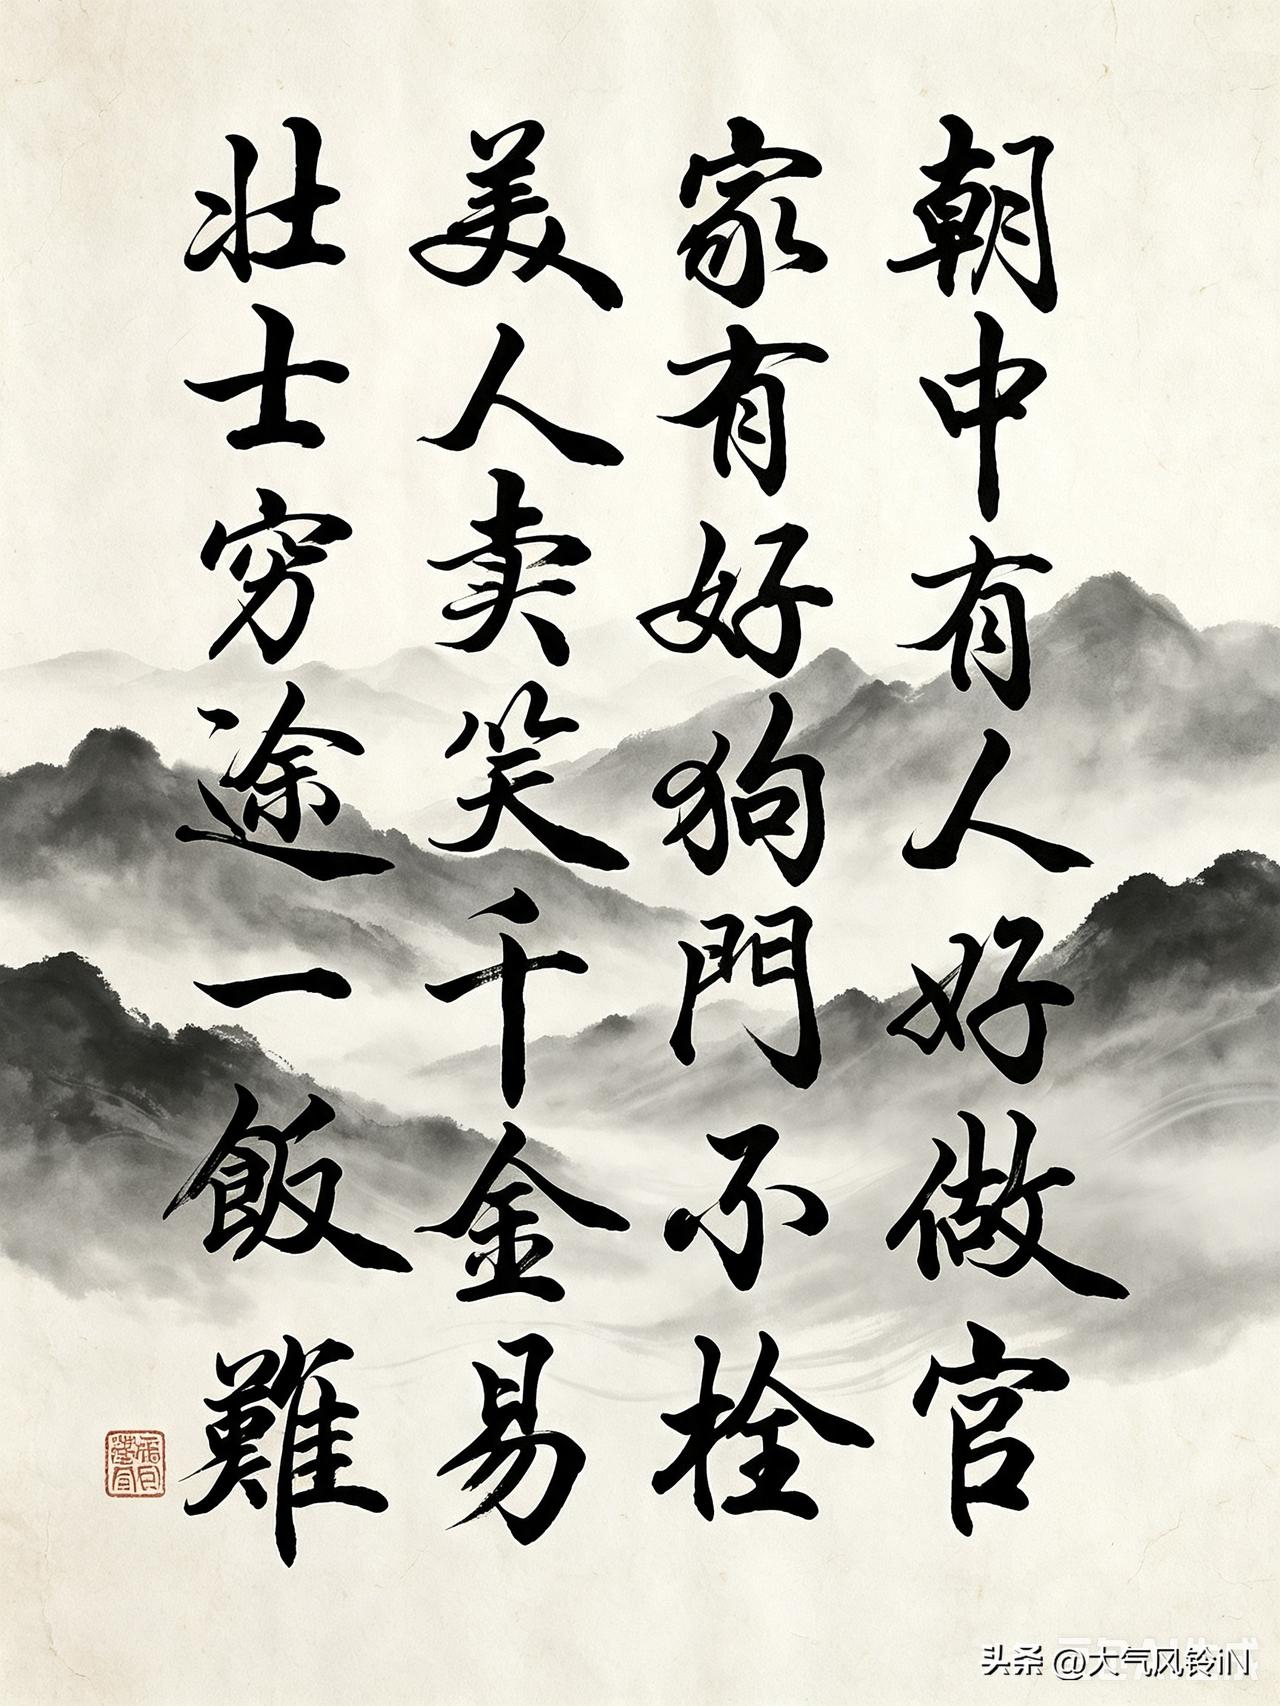 朝中有人好做官
家有好狗門不栓
美人卖笑千金易
壮士穷途一飯難
头条 @大气风铃iN